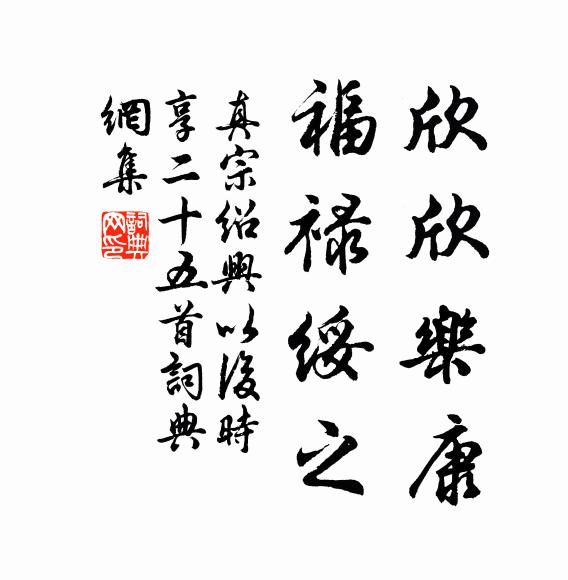 欣欣樂康
福祿綏之
真宗紹興以後時
享二十五首詞典
網集
詞典網印